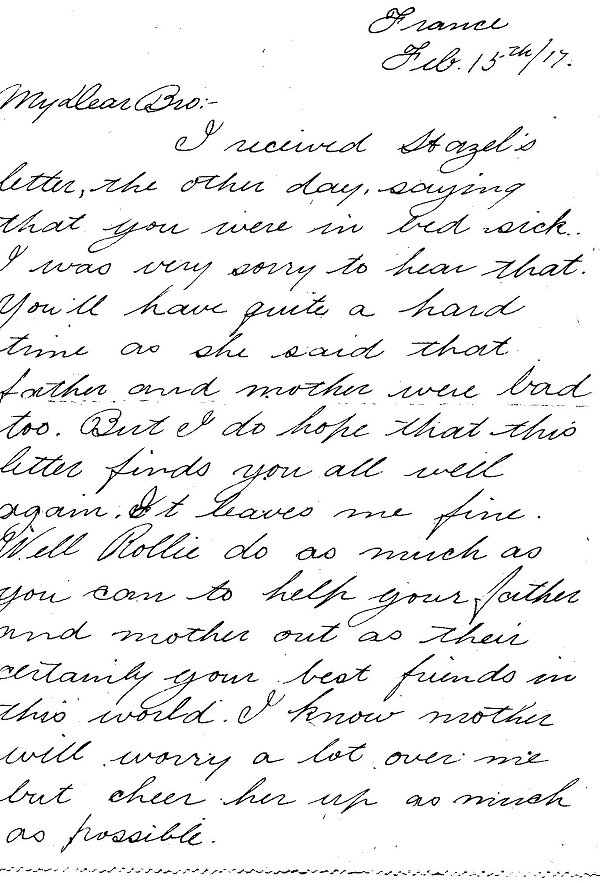 France
Feb. 15th/17.
My Dear Bro:-
I received Hazel's
letter, the other day, saying
that you were in bed sick.
I was very sorry to hear that.
You'll have quite a hard
time as she said that
father and mother were bad
too. But I do hope that this
letter finds you all well
again. It leaves me fine.
Well Rollie do as much as
you can to help your father
and mother out as their
certainly your best friends in
this world. I know mother
will worry a lot over me
but cheer her up as much
as possible.